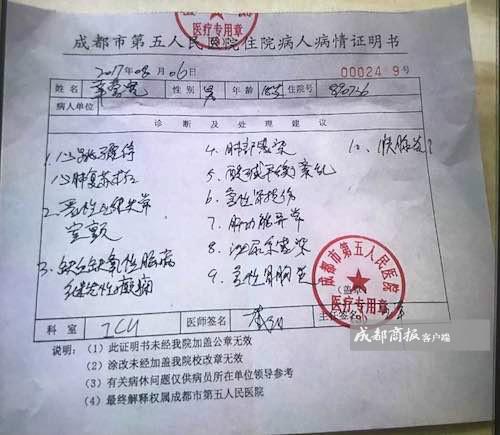 医疗专用章
成都市第五人民医院住院病人病情证明书
2017年08月06日 00024 9号
姓名 性别 男 年龄 住院号
病人单位
诊断及处理建议
1. 心跳骤停
心肺复苏术后
2. 恶性心律失常
室颤
3. 缺血缺氧性脑病
继发性癫痫
4. 肺部感染
5. 酸碱平衡紊乱
6. 急性肾损伤
7. 肝功能异常
8. 泌尿系感染
9.
成都市第五人民医院
医疗专用章
科室 ICU 医师签名 主任签名
说明：（1）此证明书未经我院加盖公章无效
（2）涂改未经加盖我院校改章无效
（3）有关病休问题仅供病员所在单位领导参考
（4）最终解释权属成都市第五人民医院
成都商报客户端